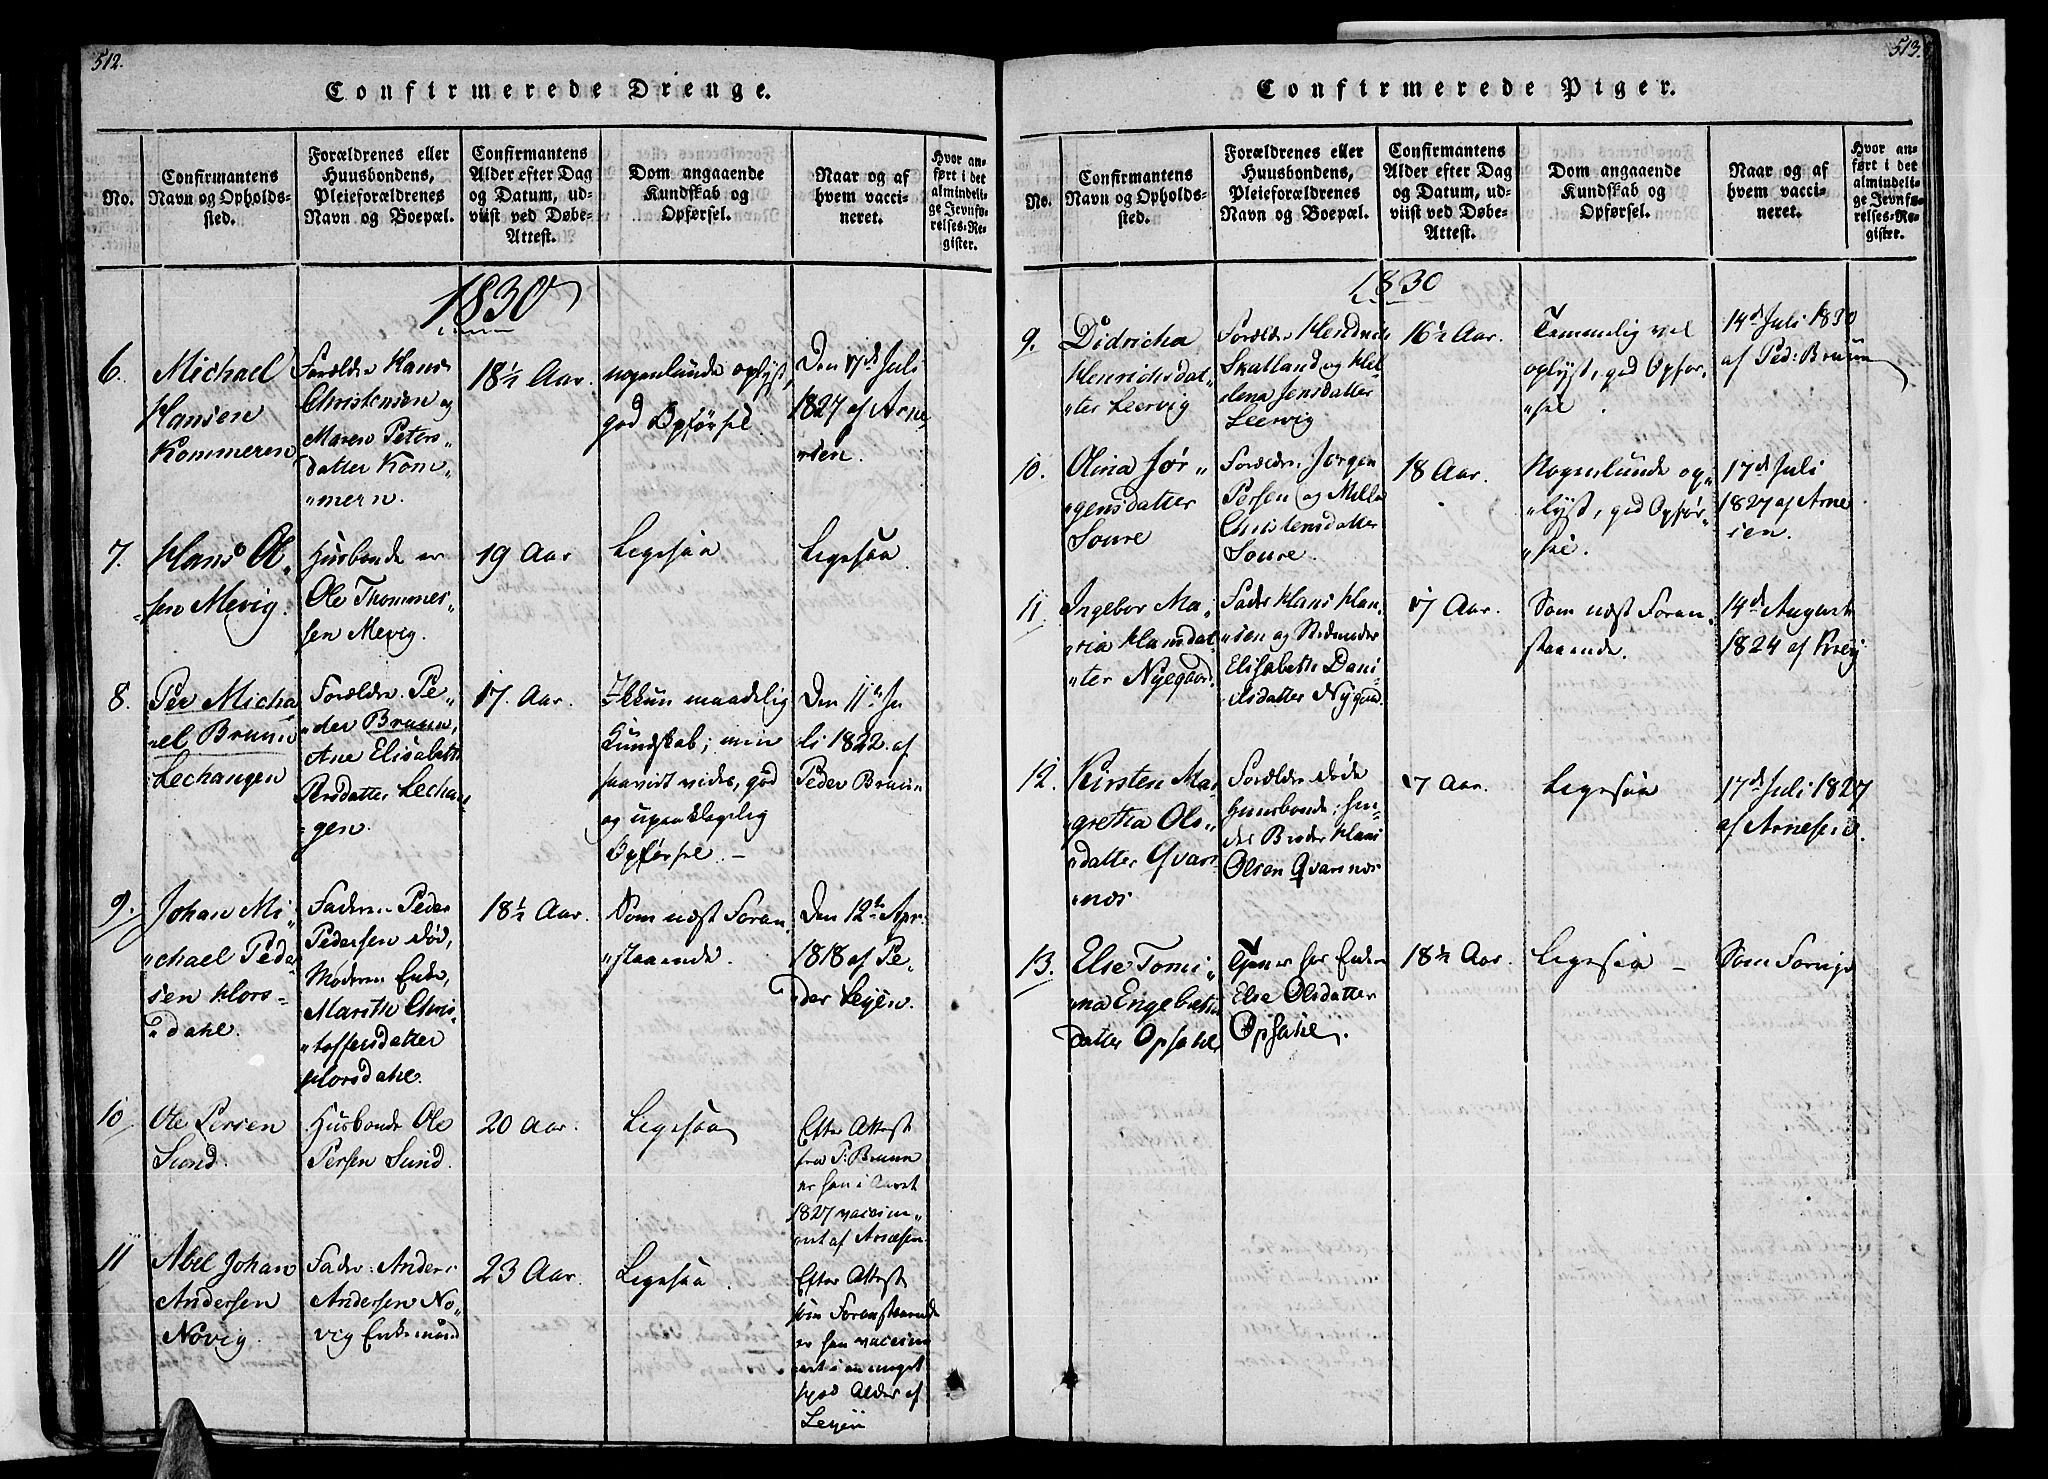 512.
Confirmerede Drenge.
No.
Confirmantens
Navn og Opholds-
sted.
Forældrenes eller
Huusbondens,
Pleieforældrenes
Navn og Boepæl.
Confirmantens
Alder efter Dag
og Datum, ud-
viist ved Døbe-
Attest.
Dom angaaende
Kundskab og
Opførsel.
Naar og af
hvem vacci-
neret.
Hvor an-
ført i det
almindeli-
ge Jevnfø-
relses-Re-
gister.
1830
6.
Michael
Hansen
Kommeren
Forældre Hans
Christensen og
Maren Peters„
datter Kom„
„mern.
18½ Aar.
nogenlunde oplyst,
god Opførsel.
Den 17de Juli
1827 af Arne„
„sen.
7.
Hans Ol„
„sen Mevig.
Husbonde er
Ole Thommes„
sen Mevig.
19 Aar
Ligesaa
Ligesaa.
8.
Per Micha
„el Bruun
Lechangen
Forældre Pe„
„der Bruun,
Ane Elisabeth
Persdatter Lechan
„gen.
17. Aar.
Ikkun maadelig
Kundskab, men
saavidt vides, god
og upaaklagelig
Opførsel. –
Den 11te Ju
li 1822 af
Peder Bruun
9.
Johan Mi„
„chael Peder
sen Hors-
„dahl.
Faderen Peder
Pedersen død,
Moderen Enke,
Marith Chris„
„toffersdatter
Horsdahl.
18½ Aar.
Som næst Foran
„staaende.
Den 12te Apr.
1818 af Pe„
„der Leyen.
10
Ole Persen
Sund.
Husbonde Ole
Persen Sund.
20 Aar.
Ligesaa
Efter Attest
fra P: Bruun
er han i Aaret
1827 vaccine„
ret af Arnesen
11
Abel Johan
Andersen
Novig.
Fader: Anders
Andersen No„
vig Enkemand
23 Aar.
Ligesaa.
Efter Attest
som Foranstaaende
er han vaccine
ret i en meget
spæd Alder af
Leyen
513.
Confirmerede Piger.
No.
Confirmantens
Navn og Opholds-
sted.
Forældrenes eller
Huusbondens,
Pleieforældrenes
Navn og Boepæl.
Confirmantens
Alder efter Dag
og Datum, ud-
viist ved Døbe-
Attest.
Dom angaaende
Kundskab og
Opførsel.
Naar og af
hvem vacci-
neret.
Hvor an-
ført i det
almindeli-
ge Jevnfø-
relses-Re-
gister.
1830
9.
Didricha
Henrichsdat„
„ter Leervig
Forældre Hendrich
Skatland og Hel„
lena Jensdatter
Leervig
16½ Aar.
Temmelig vel
oplyst, god Opfør„
„sel.
14de Juli 1830
af Ped: Bruun
10.
Olina Jør„
„gensdatter
Soure
Forældre: Jørgen
Persen og Milla
Christensdatter
Soure.
18 Aar.
Nogenlunde op„
„lyst, god Opfør„
„sel.
17de Juli
1827 af Arne
sen.
11.
Ingebor Ma„
„ria Hansdat„
„ter Nyegaard.
Fader Hans Han„
„sen og
Elisabeth Dani„
elsdatter Nygaard
17 Aar.
Som næst Foran„
staaende.
14de August
1824 af
12.
Kirsten Ma„
„gretha Ols„
„datter Qvars
„næs
Forældre døde
Huusbonde: hen„
des Broder Hans
Olsen Qvarsnæs
17 Aar.
Ligesaa
17de Juli 1827
af Arnesen.
13.
Else Tomi„
„na Engebrets
datter Opsahl
Tjener hos Enken
Else Olsdatter
Opsahl.
18½ Aar.
Ligesaa –
Som Forrige